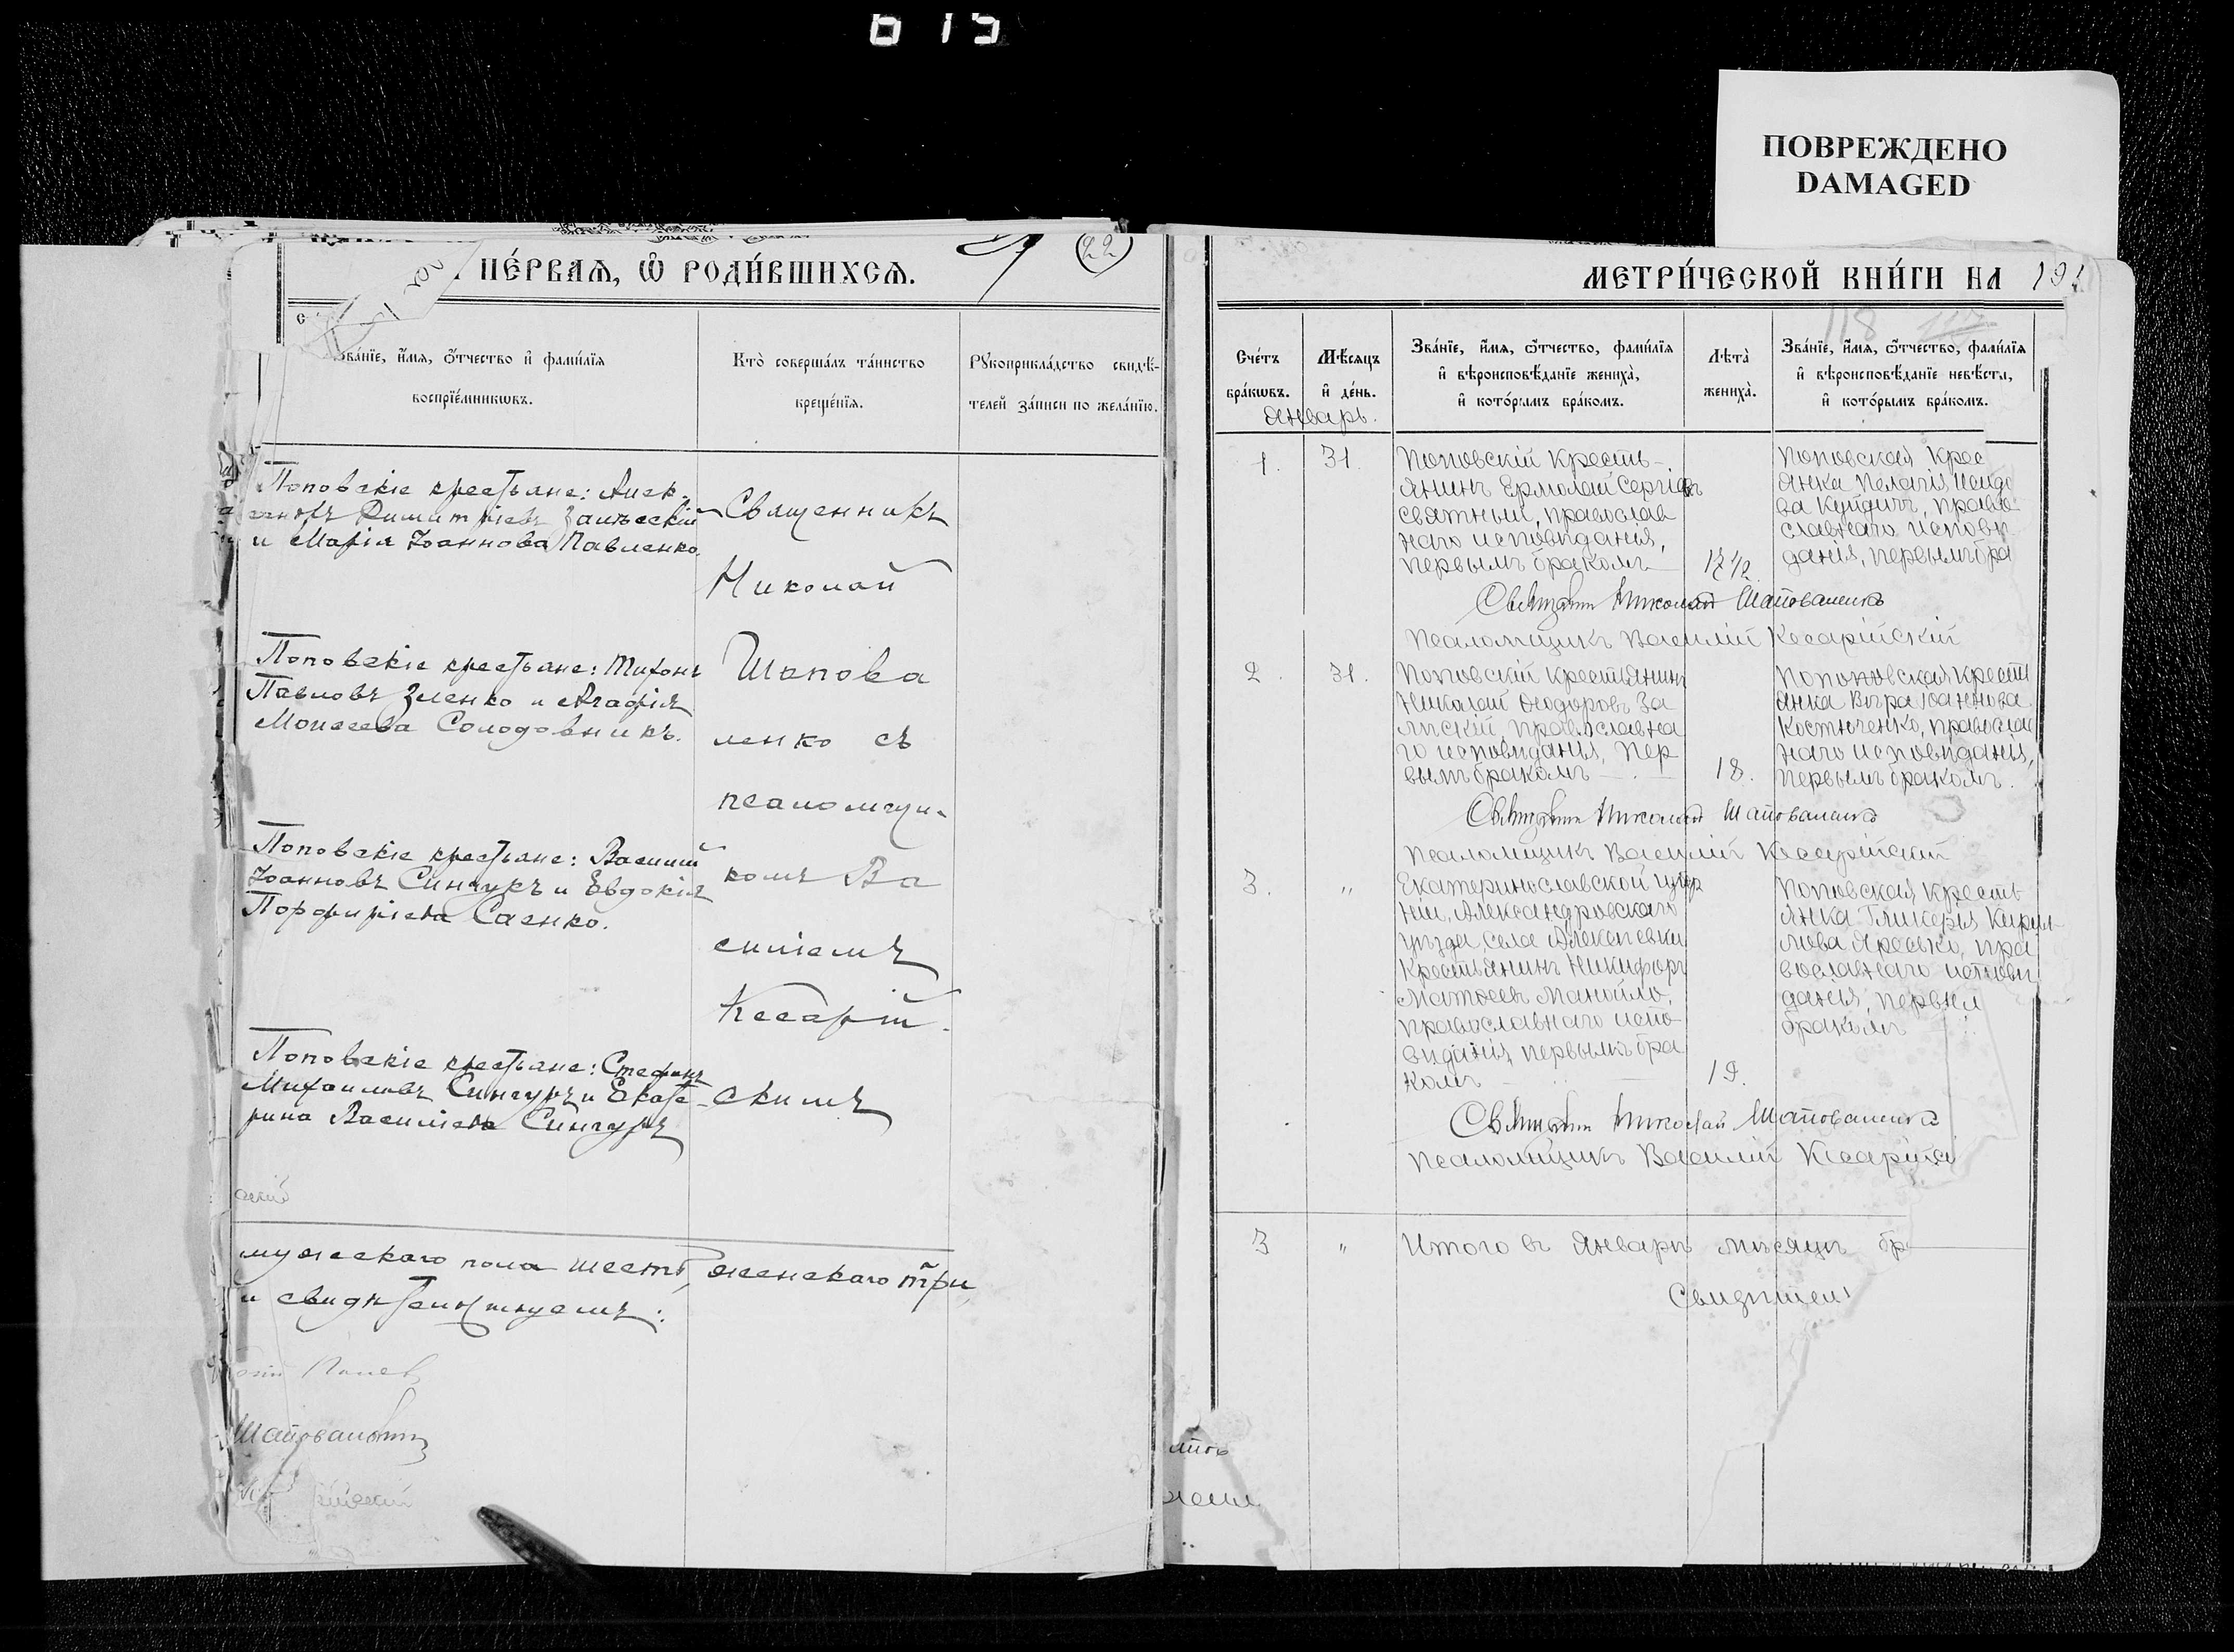 615
ПОВРЕЖДЕНО
DAMAGED
22
ПЕ́РВАѦ, Ѿ РОДИ́ВШИХСѦ.
Зва́нїе, и҆́мѧ, ѻ҆́тчество и҆ фами́лїѧ
воспрїе́мникѡвъ.
Кто̀ соверша́лъ та́инство
креще́нїѧ.
Рꙋкоприкла́дство свидѣ́-
телей за́писи по жела́нїю.
Поповскіе крестьяне: Алек-
Димитріевъ Залѣскій
и Марія Іоаннова Павленко.
Поповскіе крестьяне: Тихонъ
Павловъ Зленко и Агафія
Моисеева Солодовникъ.
Поповскіе крестьяне: Василій
Іоанновъ Сингуръ и Евдокія
Порфиріева Саенко.
Поповскіе крестьяне: Стефанъ
Михаиловъ Сингуръ и Екате-
рина Василіева Сингуръ
Священникъ
Николай
Шапова
ленко съ
псаломщи-
комъ Ва
силіемъ
Кесарій-
скимъ
мужескаго пола шесть, женскаго три,
и свидѣтельствуемъ:
МЕТРИ́ЧЕСКОЙ КНИ́ГИ НА 191
118
Сче́тъ
бра́кѡвъ.
Мѣ́сѧцъ
и҆ де́нь.
Зва́нїе, и҆́мѧ, ѻ҆́тчество, фами́лїѧ
и҆ вѣроисповѣ́данїе жениха̀,
и҆ кото́рымъ бра́комъ.
Лѣта̀
жениха̀.
Зва́нїе, и҆́мѧ, ѻ҆́тчество, фами́лїѧ
и҆ вѣроисповѣ́данїе невѣ́сты,
и҆ кото́рымъ бра́комъ.
Январь.
1. 31.
Поповскій Кресть-
янинъ Ермолай Сергіевъ
Святный, православ
наго исповѣданія,
первымъ бракомъ
18 1/2.
Поповская Крес
янка Пелагія Исидо
ва Куйдичъ, право
славнаго исповѣ
данія, первымъ бра
Священникъ Николай Шаповаленко
Псаломщикъ Василій Кесарійскій
2. 31.
Поповскій крестьянинъ
Николай Ѳеодоровъ За
лѣскій, православна
го исповѣданія, пер
вымъ бракомъ
18.
Поповская Кресть
янка Вѣра Іоаннова
Костюченко, православ
наго исповѣданія,
первымъ бракомъ.
Священникъ Николай Шаповаленко
Псаломщикъ Василій Кесарійскій
3. "
Екатеринославской губер
ніи, Александровскаго
уѣзда, села Алексѣевки
Крестьянинъ Никифоръ
Матѳеевъ Манойло,
православнаго испо
вѣданія, первымъ бра
комъ
19.
Поповская Кресть
янка Гликерія Кирил
лова Яресько, пра
вославнаго исповѣ
данія, первымъ
бракомъ
Священникъ Николай Шаповаленко
Псаломщикъ Василій Кесарійскі
3 " Итого въ Январѣ мѣсяцѣ бр
Свидѣтел